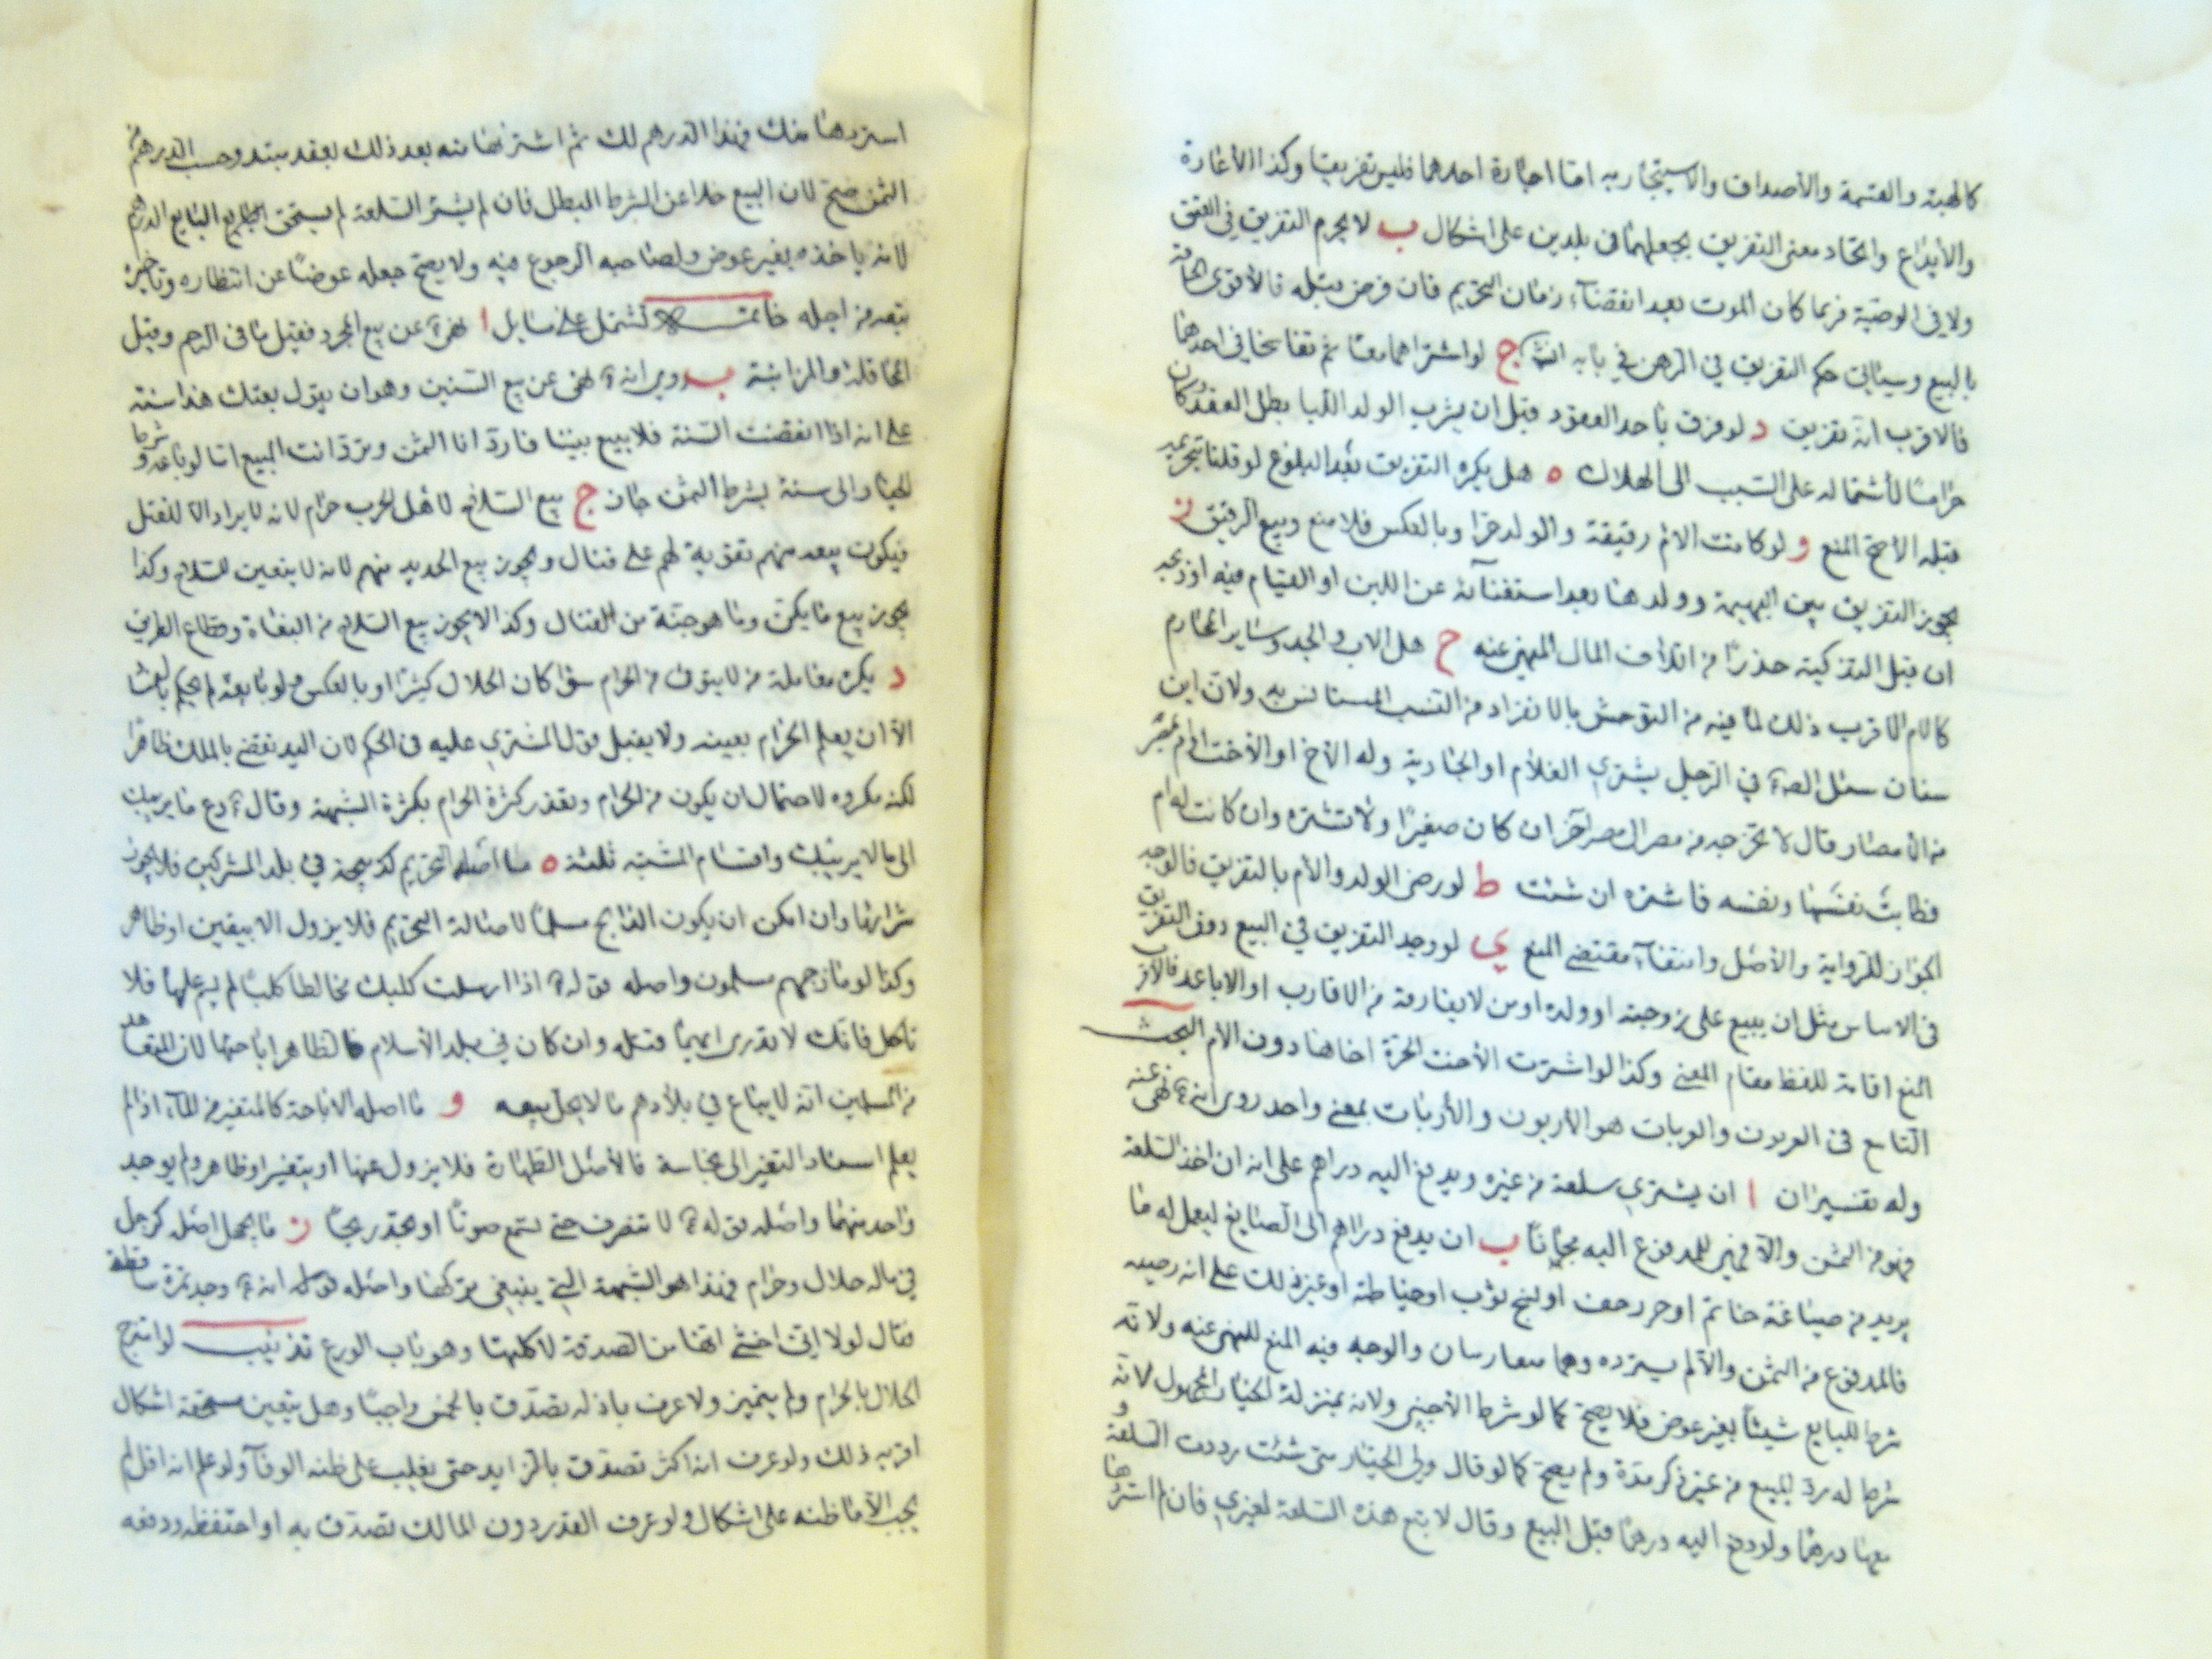 كالهبة والقسمة والأصداق والاستيجار به اما اجارة احدهما فليس تفريقا وكذا الأعارة
والأيداع واتحاد معنى التفريق بجعلهما فى بلدين على اشكال ب لا يحرم التفريق في العتق
ولا في الوصية فربما كان الموت بعد انقضاء زمان التحريم فان فرض قبله فالأقوى الحاقه
بالبيع وسيأتي حكم التفريق في الرهن في بابه انش ج لو اشتراهما معا ثم تفاسخا في احدهما
فالاقرب انه تفريق د لو فرق باحد العقود قبل ان يشرب الولد اللبا بطل العقد وكان
حرامًا لأشتماله على التسبب الى الهلاك ه هل يكره التفريق بعد البلوغ لو قلنا بتحريمه
قبله الأصح المنع و لو كانت الام رقيقة والولد حرا وبالعكس فلا منع وبيع الرقيق ز
يجوز التفريق بين البهيمة وولدها بعد استغنائه عن اللبن او القيام فيه او ذبحه
ان قبل التذكية حذرًا من اتلاف المال المنهى عنه ح هل الاب والجد وساير المحارم
كالام الاقرب ذلك لما فيه من التوحش بالانفراد من النسب المستانس به ولان ابن
سنان سئل الصـ في الرجل يشتري الغلام او الجارية وله الأخ او الأخت او ام بمصر
من الأمصار قال لا تخرجه من مصر الى مصر آخر ان كان صغيرًا ولا تشتره وان كانت له ام
فطابت نفسها ونفسه فاشتره ان شئت ط لو رضى الولد والأم بالتفريق فالوجه
الجواز للرواية والأصل وانتفاء مقتضى المنع ي لو وجد التفريق في البيع دون التفريق
فى الاساس مثل ان يبيع على زوجته او ولده او من لا يفارقه من الاقارب او الاباعد فالاقرب
المنع اقامة للفظ مقام المعنى وكذا لو اشترت الأخت الحرة اخاها دون الأم البحث
التاسع فى العربون والوبات هو الأربون والأربات بمعنى واحد روى انه نهى عنه
وله تفسيران ا ان يشتري سلعة من غيره ويدفع اليه دراهم على انه ان اخذ السلعة
فهو من الثمن والا فهى للمدفوع اليه مجانًا ب ان يدفع دراهم الى الصايغ ليعمل له ما
يريد من صياغة خاتم او حرز خف او نسج ثوب او خياطة او غير ذلك على انه رضيه
فالمدفوع من الثمن والا لم يسترده وهما متقاربان والوجه فيه المنع للنهى عنه ولانه
شرط للبايع شيئًا بغير عوض فلا يصح كما لو شرط الأجنبي ولانه بمنزلة الخيار المجهول لانه
شرط له رد المبيع من غير ذكر مدة ولم يصح كما لو قال ولي الخيار متى شئت رددت السلعة و
معها درهمًا ولو دفع اليه درهمًا قبل البيع وقال لا تبع هذه السلعة لغيري فان لم اشترها
استردها منك فهذا الدرهم لك ثم اشترى هنا منه بعد ذلك بعقد مبتد وحسب الدرهم من
الثمن صح لان البيع خلا عن الشرط المبطل فان لم يشتر السلعة لم يستحق البايع الدرهم
لانه ياخذه بغير عوض ولصاحبه الرجوع فيه ولا يصح جعله عوضًا عن انتظاره وتأخير
بيعه من اجله خاتمة تشتمل على مسايل ا نهى عن بيع المجر فقيل ما فى الرحم وقيل
المحاقلة والمزابنة ب روى انه نهى عن بيع السنين وهو ان يقول بعتك هذا سنة
على انه اذا انقضت السنة فلا بيع بيننا فارد انا الثمن وترد انت المبيع اما لو باعه وشرط
الخيار الى سنة بشرط الثمن جاز ج بيع السلاح لاهل الحرب حرام لانه لا يراد الا للقتل
فيكون بيعه منهم تقوية لهم على قتال ويجوز بيع الحديد منهم لانه لا يتعين للسلاح وكذا
يجوز بيع ما يكن وما هو جنة من القتال وكذا لا يجوز بيع السلاح من البغاة وقطاع الطريق
د يكره معاملة من لا يتوقى من الحرام سواء كان الحلال كثيرًا او بالعكس ولو بايعه لم يحكم بالفساد
الا ان يعلم الحرام بعينه ولا يقبل قول المشتري عليه فى الحكم لان اليد تقضى بالملك ظاهرا
لكنه مكروه لاحتمال ان يكون من الحرام وبقدر كثرة الحرام بكثرة الشبهة وقال دع ما يريبك
الى ما لا يريبك واقسام المشتبه ثلثة ه ما اصله التحريم كذبيحة في بلد المشركين فلا يجوز
شراؤها وان امكن ان يكون الذابح مسلمًا لاصالة التحريم فلا يزول الا بيقين او ظاهر
وكذا لو مازجهم مسلمون واصله قوله اذا ارسلت كلبك فخالطا كلبًا لم يسم عليها فلا
تاكل فانك لا تدرى ايهما قتله وان كان في بلد الأسلام فالظاهر اباحتها لان المتعاهد
من المسلمين انه لا يباع في بلادهم ما لا يحل بيعه و ما اصله الاباحة كالمتغير من الماء اذا لم
يعلم اسناد التغير الى نجاسة فالأصل الطهارة فلا يزول عنها او يتغير او ظاهر ولم يوجد
واحد منهما واصله قوله لا تنصرف حتى تسمع صوتًا او تجد ريحًا ز ما يجهل اصله كرجل
في ماله حلال وحرام فهذا هو الشبهة التى ينبغى تركها واصله قوله انه وجد تمرة ساقطة
فقال لولا انى اخشى انها من الصدقة لاكلتها وهو باب الورع تذنيب لو امتزج
الحلال بالحرام ولم يتميز ولا عرف باذله تصدق بالخمس واجبًا وهل يتعين مستحقه اشكال
اقربه ذلك ولو عرف انه اكثر تصدق بالزايد حتى يغلب على ظنه الوفاء ولو علم انه اقل لم
يجب الا ما ظنه على اشكال ولو عرف القدر دون المالك تصدق به او احتفظه ودفعه